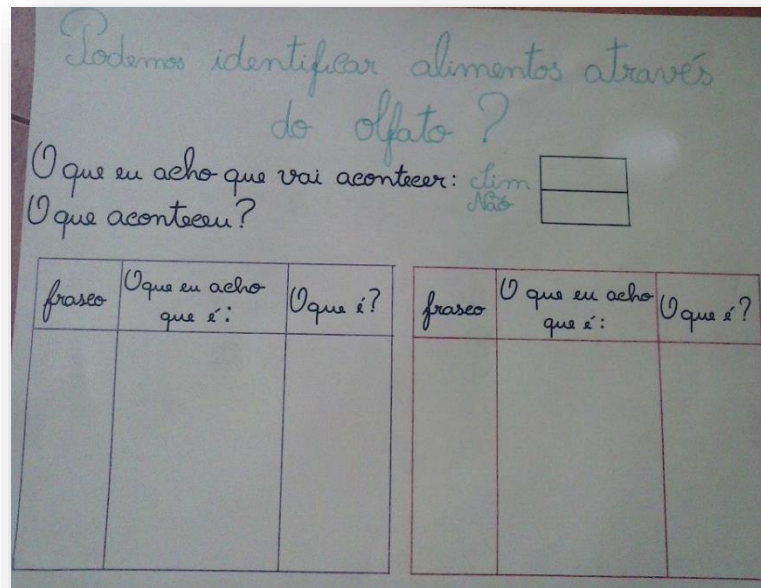 Podemos identificar alimentos através
do olfato?
O que eu acho que vai acontecer: Sim
Não
O que aconteceu?
frasco
O que eu acho
que é:
O que é?
frasco
O que eu acho
que é:
O que é?